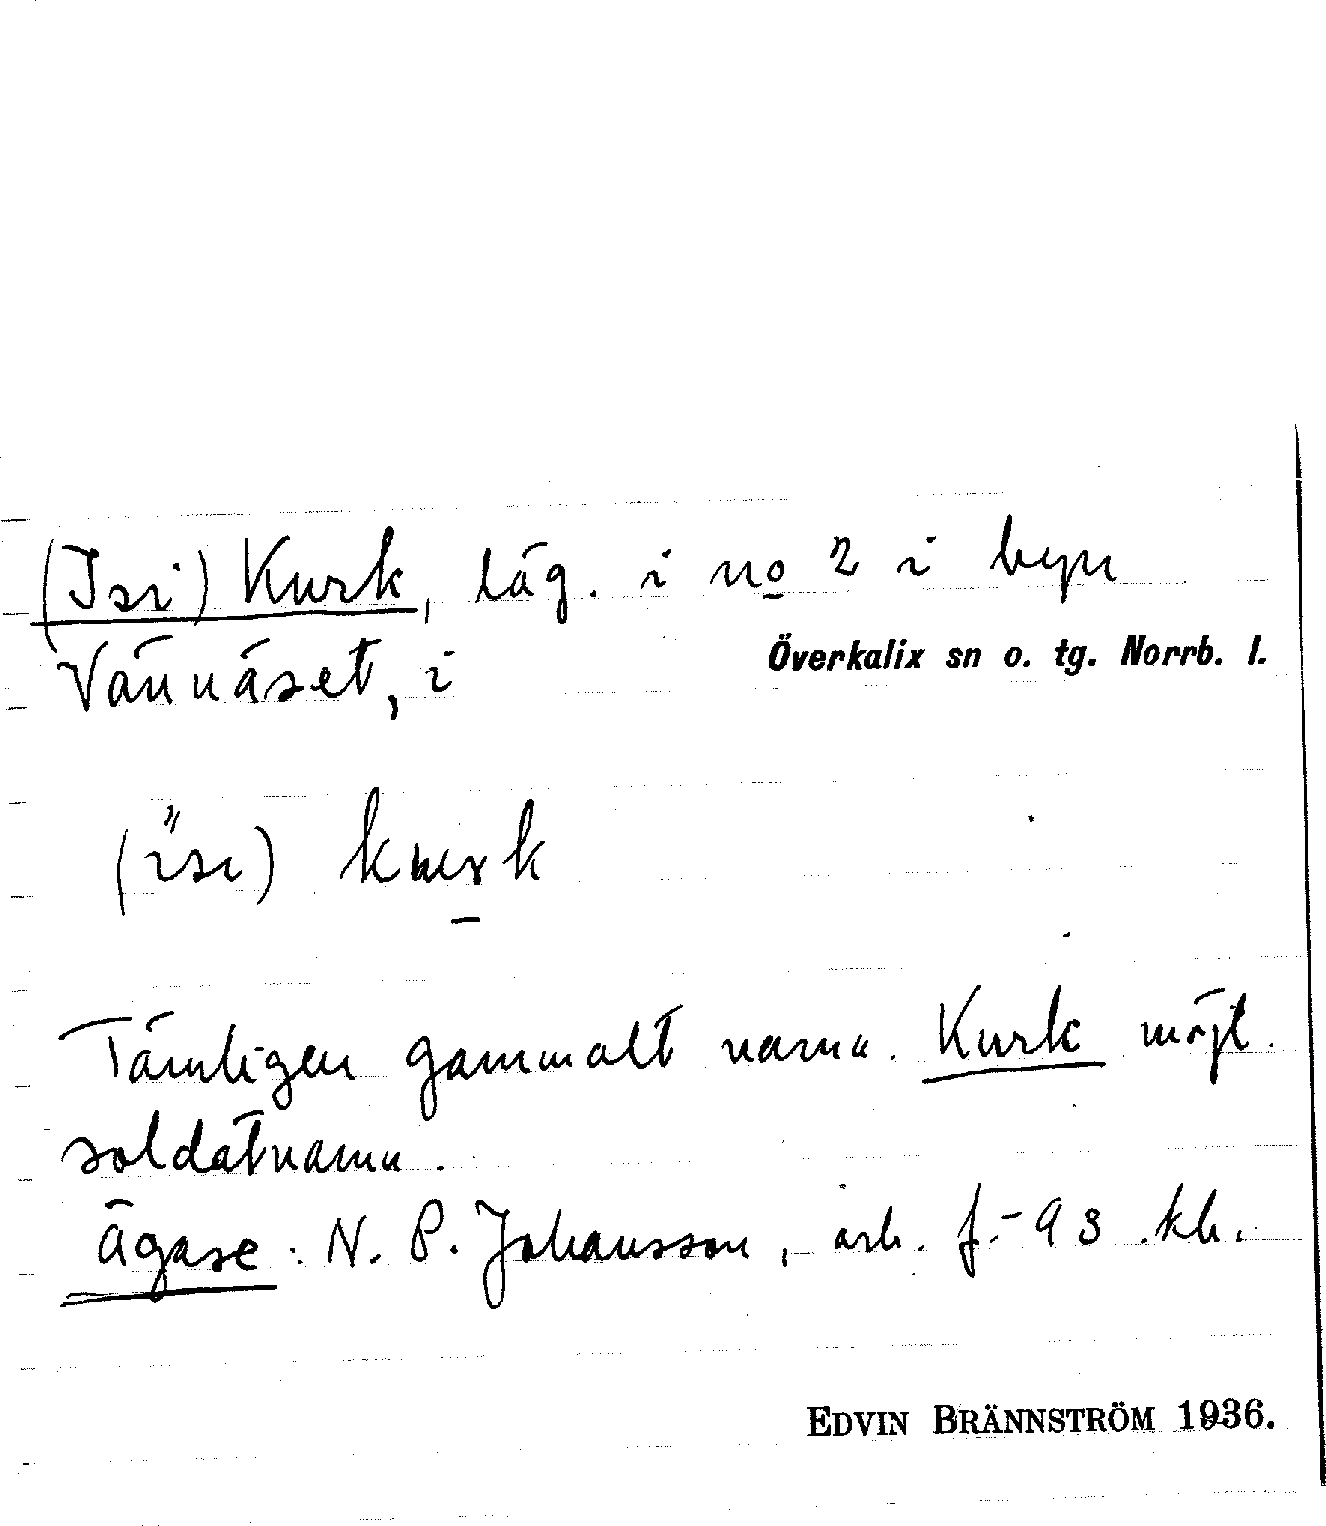 (Isi) Kurk, läg. i no 2 i byn
Vännäset, i Överkalix sn o. tg. Norrb. l.
(ïsı) kurk
Tämligen gammalt namn. Kurk möjl.
soldatnamn.
Ägare: N. P. Johansson, arb. f. -93 kb.
EDVIN BRÄNNSTRÖM 1936.